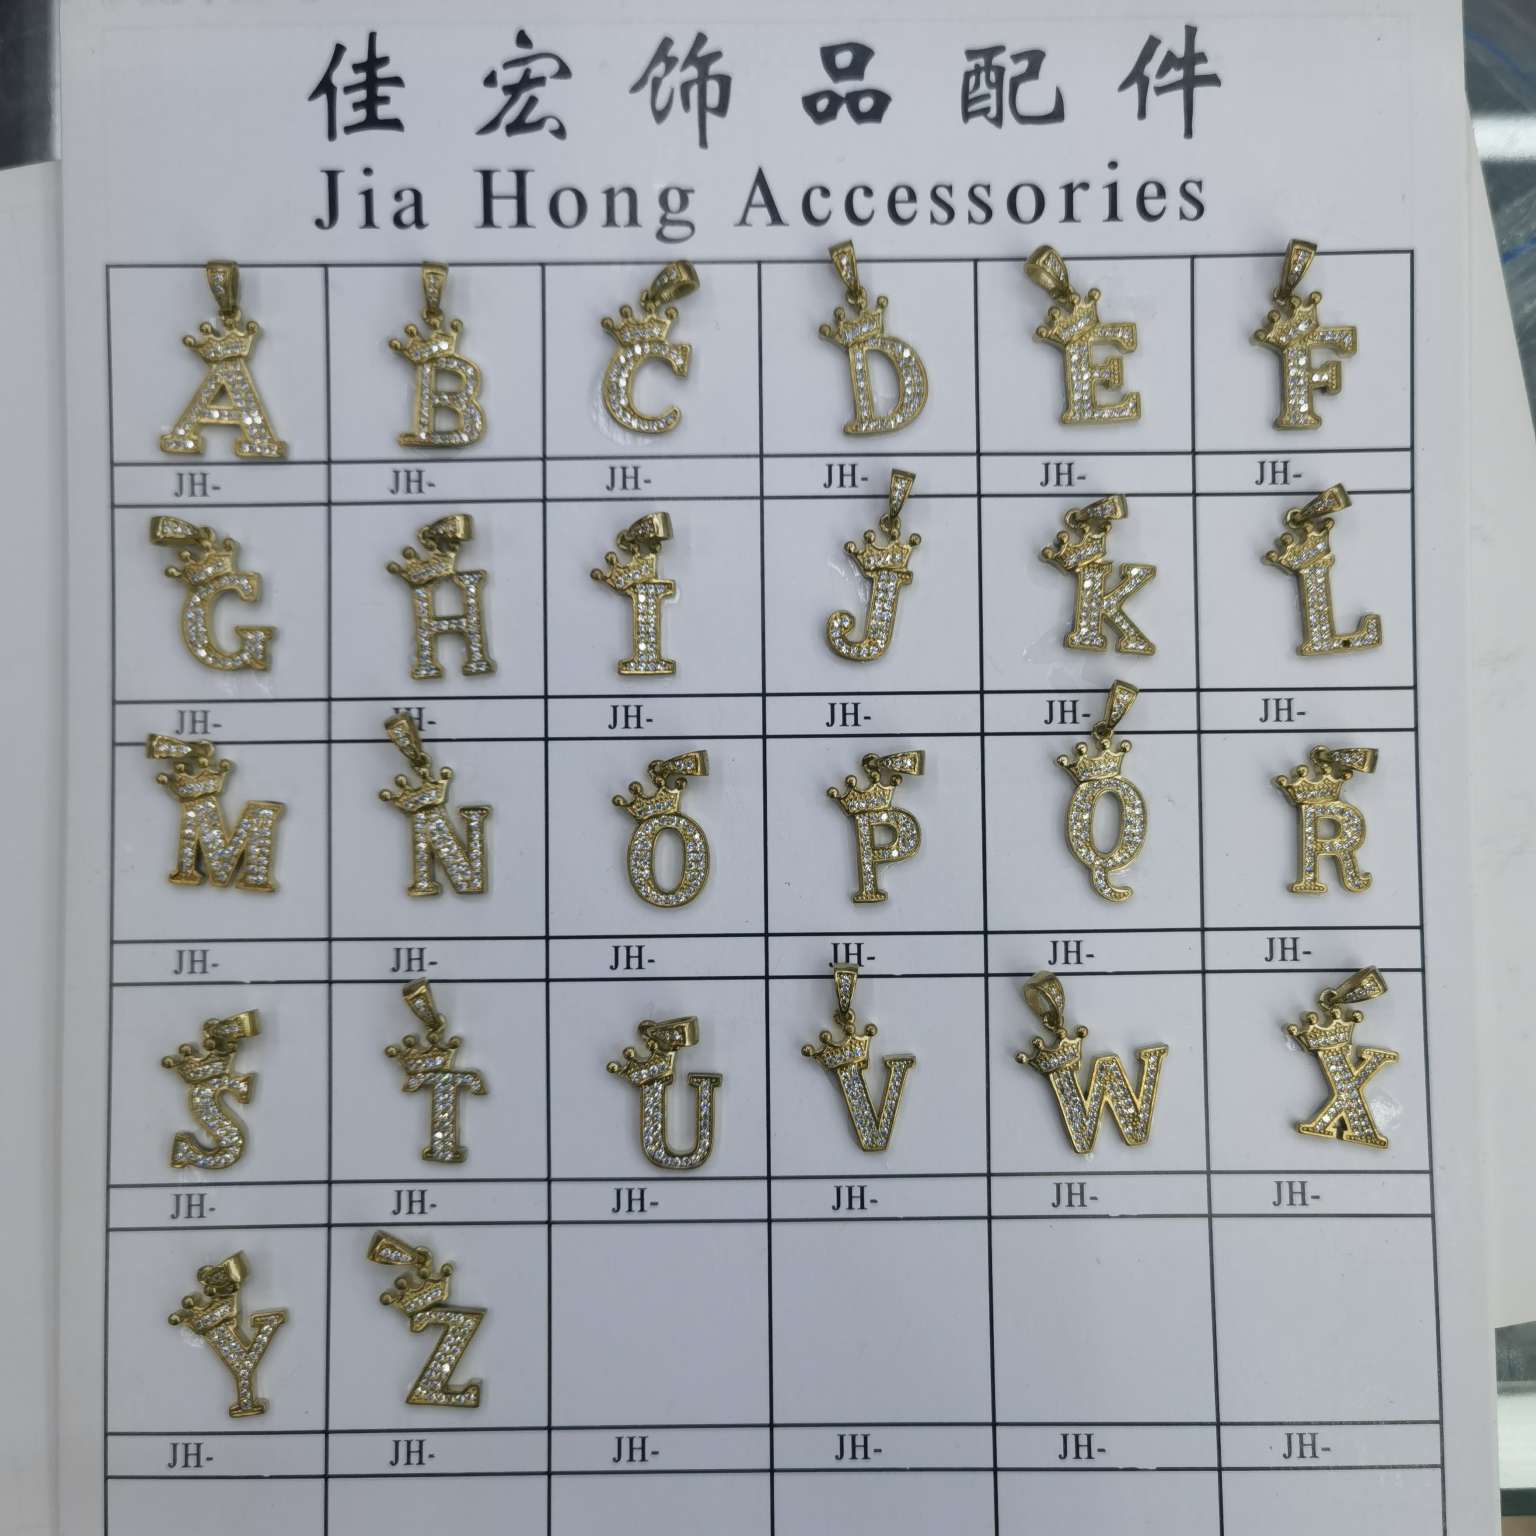 佳宏饰品配件
Jia Hong Accessories
A B C D E F
JH- JH- JH- JH- JH- JH-
G H I J K L
JH- JH- JH- JH- JH- JH-
M N O P Q R
JH- JH- JH- JH- JH- JH-
S T U V W X
JH- JH- JH- JH- JH- JH-
Y Z
JH- JH- JH- JH- JH- JH-